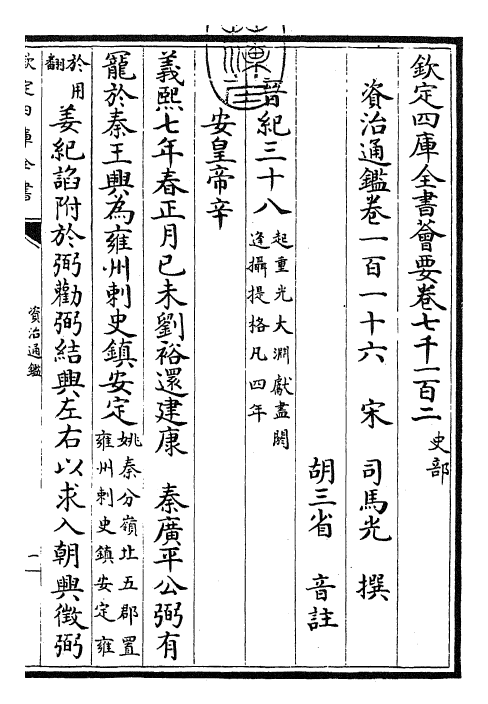 欽定四庫全書薈要卷七千一百二 史部
資治通鑑卷一百一十六 宋 司馬光 撰
胡三省 音註
晉紀三十八 起重光大淵獻盡閼逢攝提格凡四年
安皇帝辛
義熙七年春正月己未劉裕還建康 秦廣平公弼有
寵於秦王興為雍州刺史鎮安定 姚秦分嶺北五郡置雍州刺史鎮安定雍
於用翻 姜紀諂附於弼勸弼結興左右以求入朝興徵弼
欽定四庫全書
資治通鑑
一